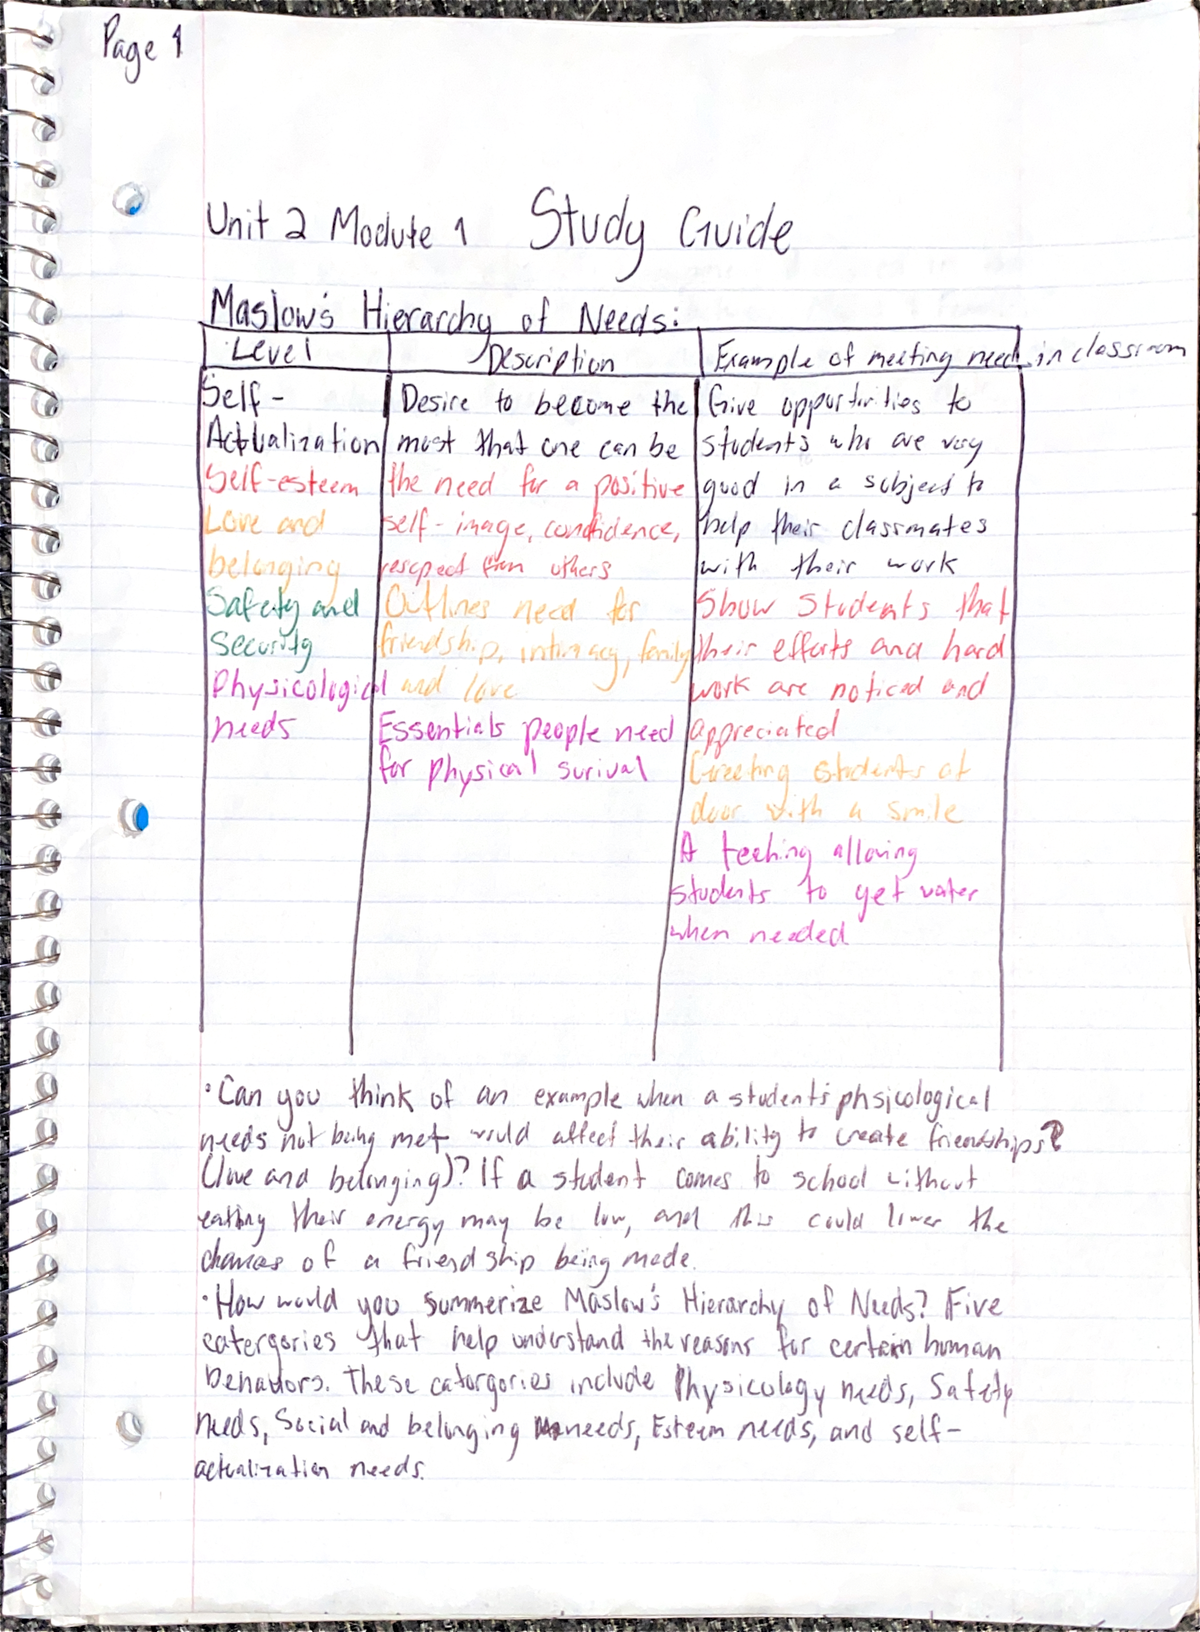 Page 1
Unit 2 Module 1 Study Guide
Maslow's Hierarchy of Needs:
Level
Self-
Actualization
Self-esteem
Love and
belonging
Safety and
Security
Physicological
needs
Description
Desire to become the
most that one can be
the need for a positive
self-image, confidence,
rescpect from others
Outlines need for
friendship, intimacy, family
and love
Essentials people need
for physical surival
Example of meeting need in classroom
Give opportunities to
students who are very
good in a subject to
help their classmates
with their work
Show Students that
their efforts and hard
work are noticed and
appreciated
Greeting students at
door with a smile
A teching allowing
students to get water
when needed
• Can you think of an example when a student's phsicological
needs not being met would affect their ability to create friendships?
(love and belonging)? If a student comes to school without
eating their energy may be low, and this could lower the
chances of a friendship being made.
• How would you summerize Maslow's Hierarchy of Needs? Five
catergories that help understand the reasons for certain human
behaviors. These catorgories include Physicology needs, Safety
needs, Social and belonging needs, Esteem needs, and self-
actualization needs.